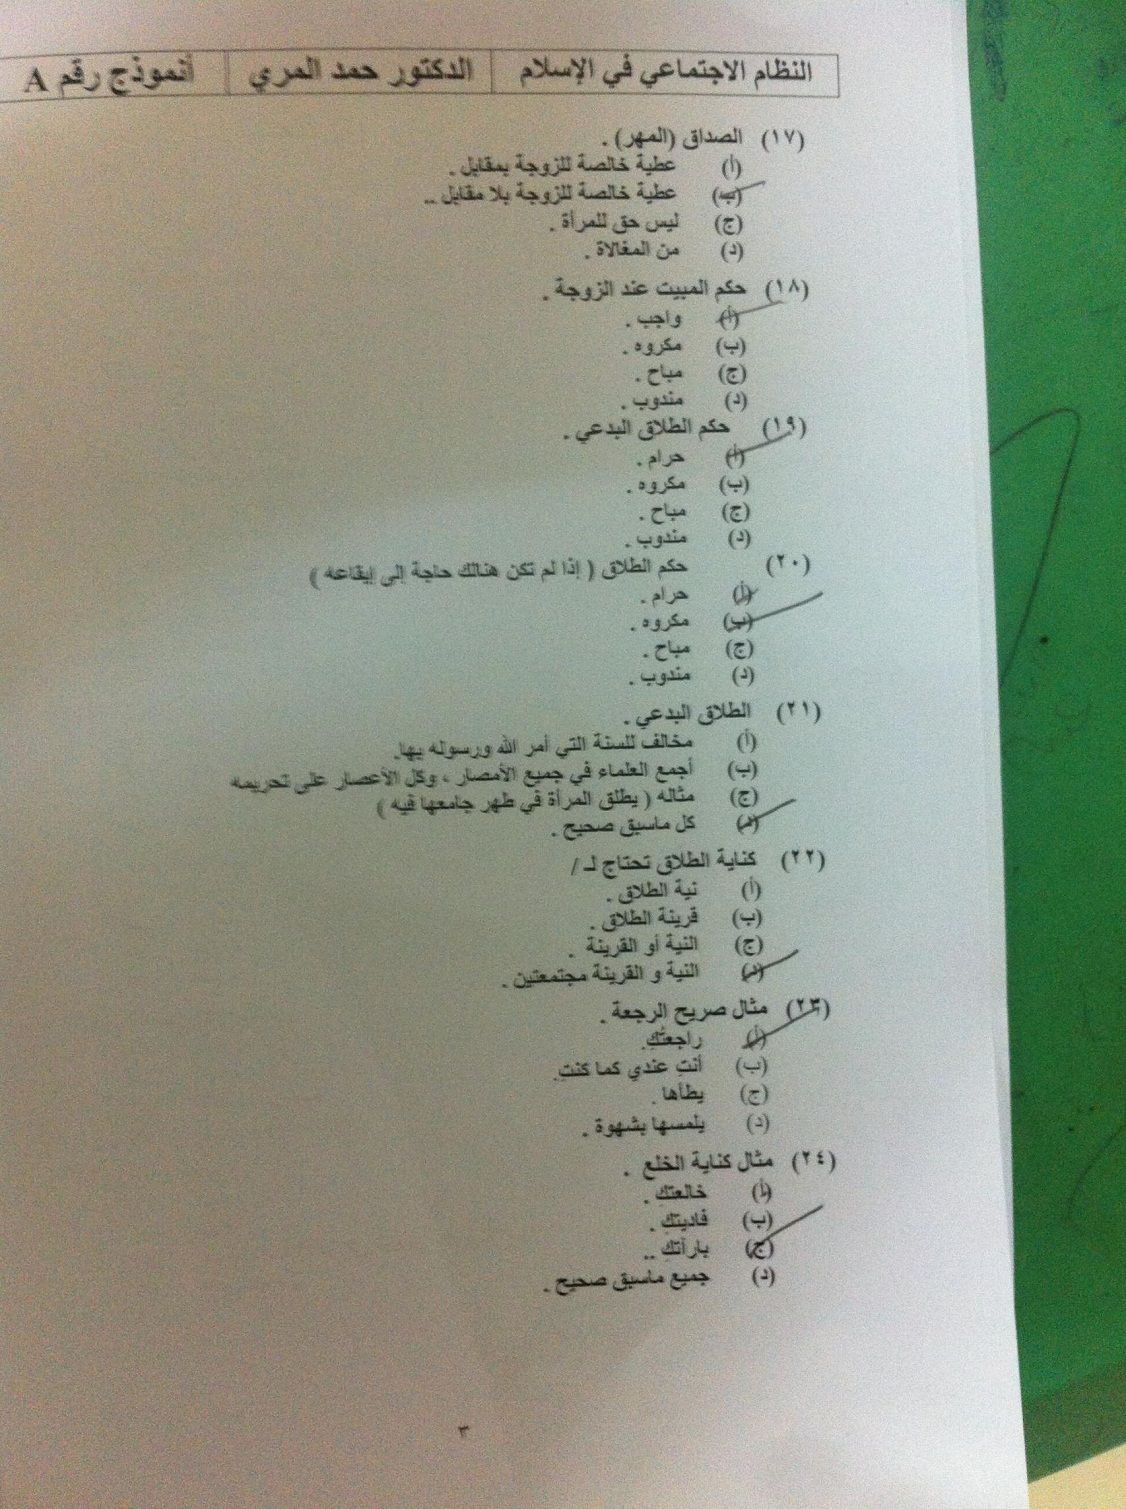 النظام الاجتماعي في الإسلام الدكتور حمد المري أنموذج رقم A
(١٧) الصداق (المهر) .
(أ) عطية خالصة للزوجة بمقابل .
(ب) عطية خالصة للزوجة بلا مقابل ..
(ج) ليس حق للمرأة .
(د) من المغالاة .
(١٨) حكم المبيت عند الزوجة .
(أ) واجب .
(ب) مكروه .
(ج) مباح .
(د) مندوب .
(١٩) حكم الطلاق البدعي .
(أ) حرام .
(ب) مكروه .
(ج) مباح .
(د) مندوب .
(٢٠) حكم الطلاق ( إذا لم تكن هنالك حاجة إلى إيقاعه )
(أ) حرام .
(ب) مكروه .
(ج) مباح .
(د) مندوب .
(٢١) الطلاق البدعي .
(أ) مخالف للسنة التي أمر الله ورسوله بها.
(ب) أجمع العلماء في جميع الأمصار ، وكل الأعصار على تحريمه
(ج) مثاله ( يطلق المرأة في طهر جامعها فيه )
(د) كل ماسبق صحيح .
(٢٢) كناية الطلاق تحتاج لـ /
(أ) نية الطلاق .
(ب) قرينة الطلاق .
(ج) النية أو القرينة .
(د) النية و القرينة مجتمعتين .
(٢٣) مثال صريح الرجعة .
(أ) راجعتُكِ.
(ب) أنتِ عندي كما كنتِ.
(ج) يطأها .
(د) يلمسها بشهوة .
(٢٤) مثال كناية الخلع .
(أ) خالعتك .
(ب) فاديتكِ .
(ج) بارأتكِ ..
(د) جميع ماسبق صحيح .
٣